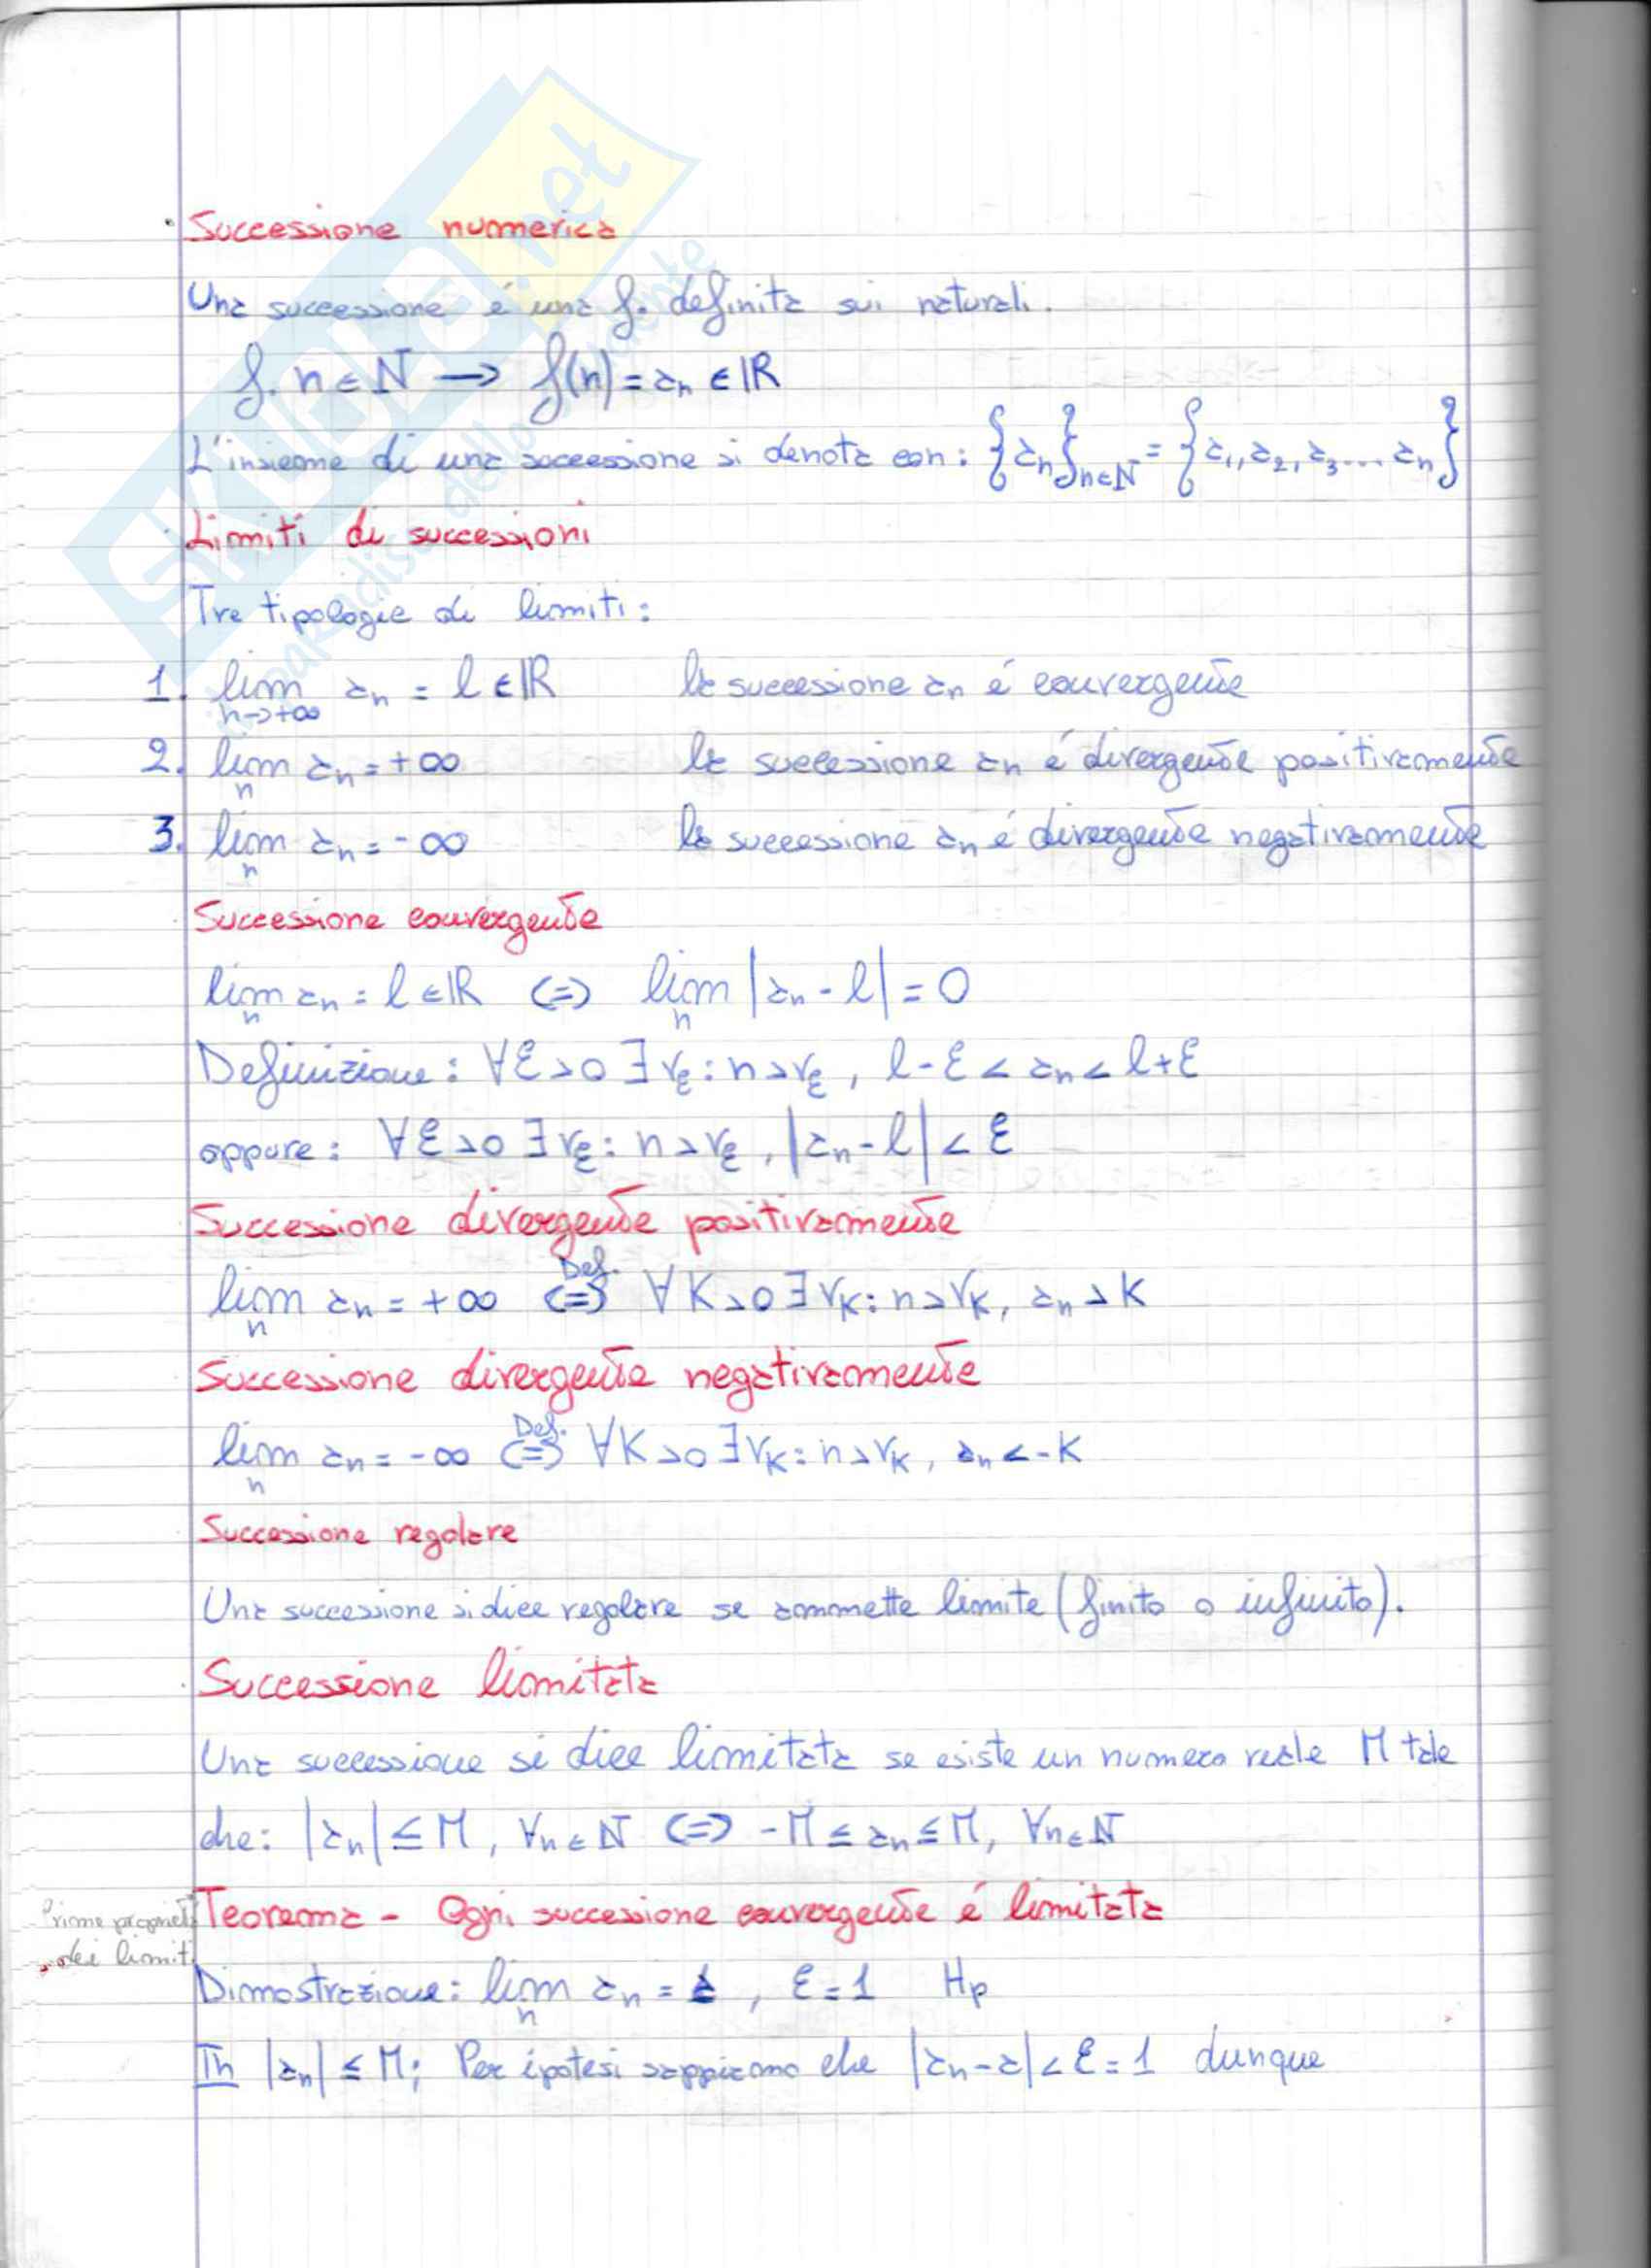 Successione numerica
Una successione é una f. definita sui naturali.
f. n∈N → f(n) = an ∈ ℝ
L'insieme di una successione si denota con: {an}n∈N = {a1, a2, a3.... an}
Limiti di successioni
Tre tipologie di limiti:
1. lim n→+∞ an = l ∈ ℝ la successione an é convergente
2. lim n an = +∞ la successione an é divergente positivamente
3. lim n an = -∞ la successione an é divergente negativamente
Successione convergente
lim n an = l ∈ ℝ <=> lim n |an - l| = 0
Definizione: ∀ε>0 ∃ νε: n>νε, l-ε < an < l+ε
oppure: ∀ε>0 ∃ νε: n>νε, |an - l| < ε
Successione divergente positivamente
lim n an = +∞ <=> Def. ∀K>0 ∃ νK: n>νK, an > K
Successione divergente negativamente
lim n an = -∞ <=> Def. ∀K>0 ∃ νK: n>νK, an < -K
Successione regolare
Una successione si dice regolare se ammette limite (finito o infinito).
Successione limitata
Una successione si dice limitata se esiste un numero reale M tale
che: |an| ≤ M, ∀n∈N <=> -M ≤ an ≤ M, ∀n∈N
Prime propriet
dei limiti
Teorema - Ogni successione convergente é limitata
Dimostrazione: lim n an = a, ε=1 Hp
Th |an| ≤ M; Per ipotesi sappiamo che |an - a| < ε = 1 dunque
SKUOLA.net
il paradiso dello studente